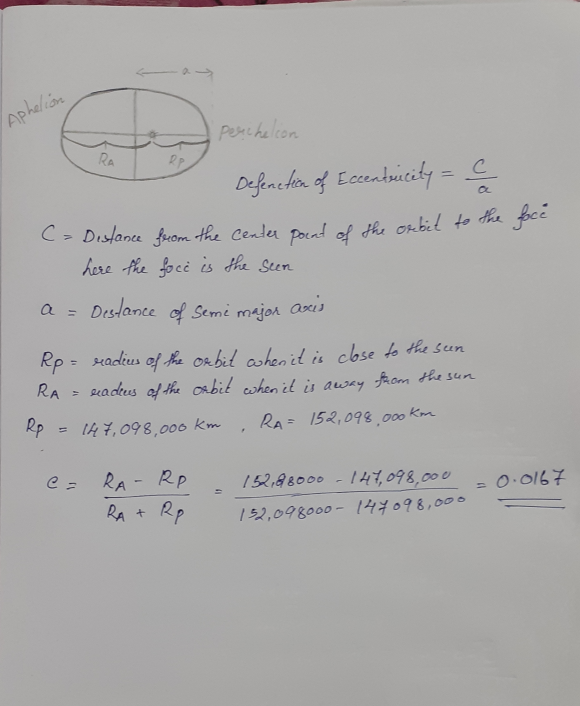 a
Aphelion
Perihelion
RA RP
Defenction of Eccentricity = C/a
C = Distance from the center point of the orbit to the foci
here the foci is the Sun
a = Distance of Semi major axis
RP = radius of the orbit when it is close to the sun
RA = radius of the orbit when it is away from the sun
RP = 147,098,000 km , RA = 152,098,000 km
e = RA - RP / RA + RP = 152,98000 - 147,098,000 / 152,098000 - 147098,000 = 0.0167